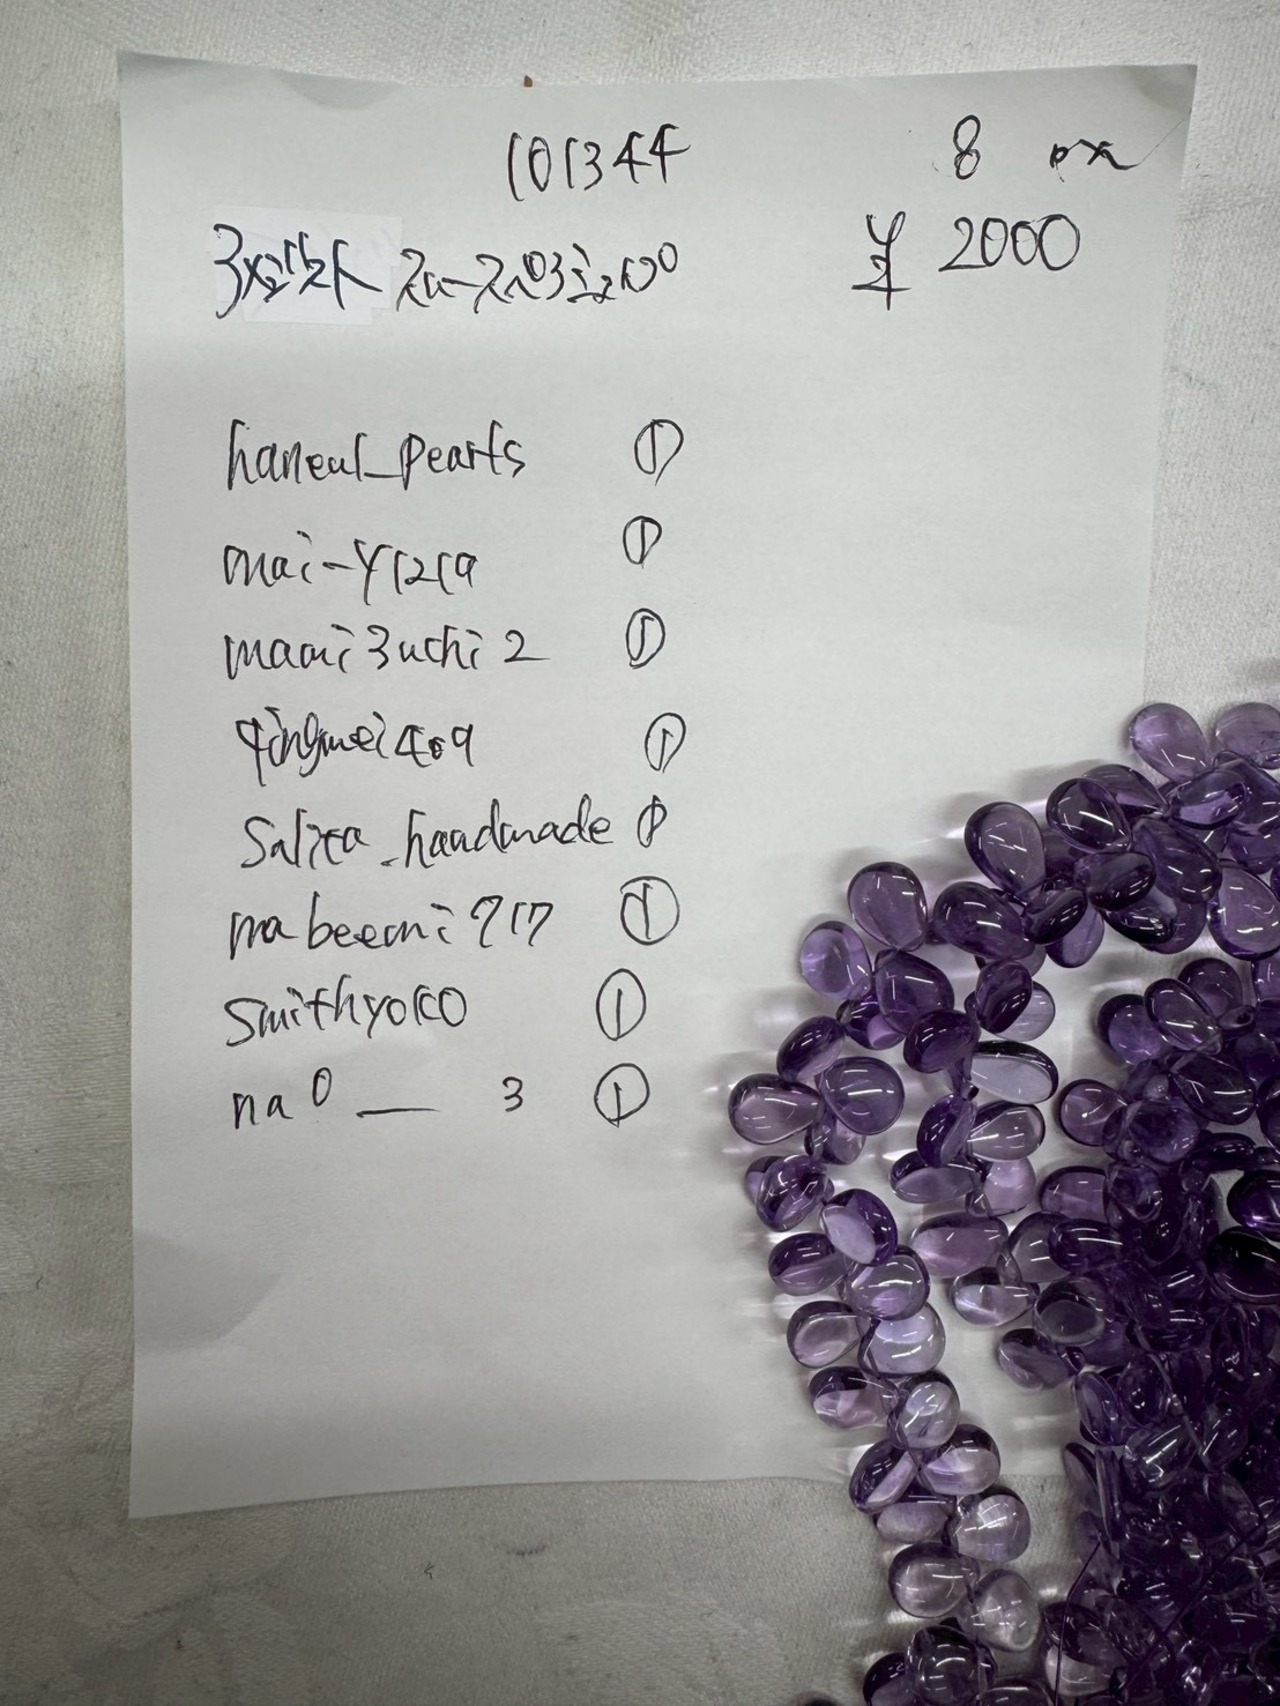 101344 8
¥ 2000
haneul_pearls ①
mai-y1219 ①
mami3uchi2 ①
qingmei409 ①
Salita_handmade ①
nabeemi717 ①
Smithyoko ①
na0__ 3 ①